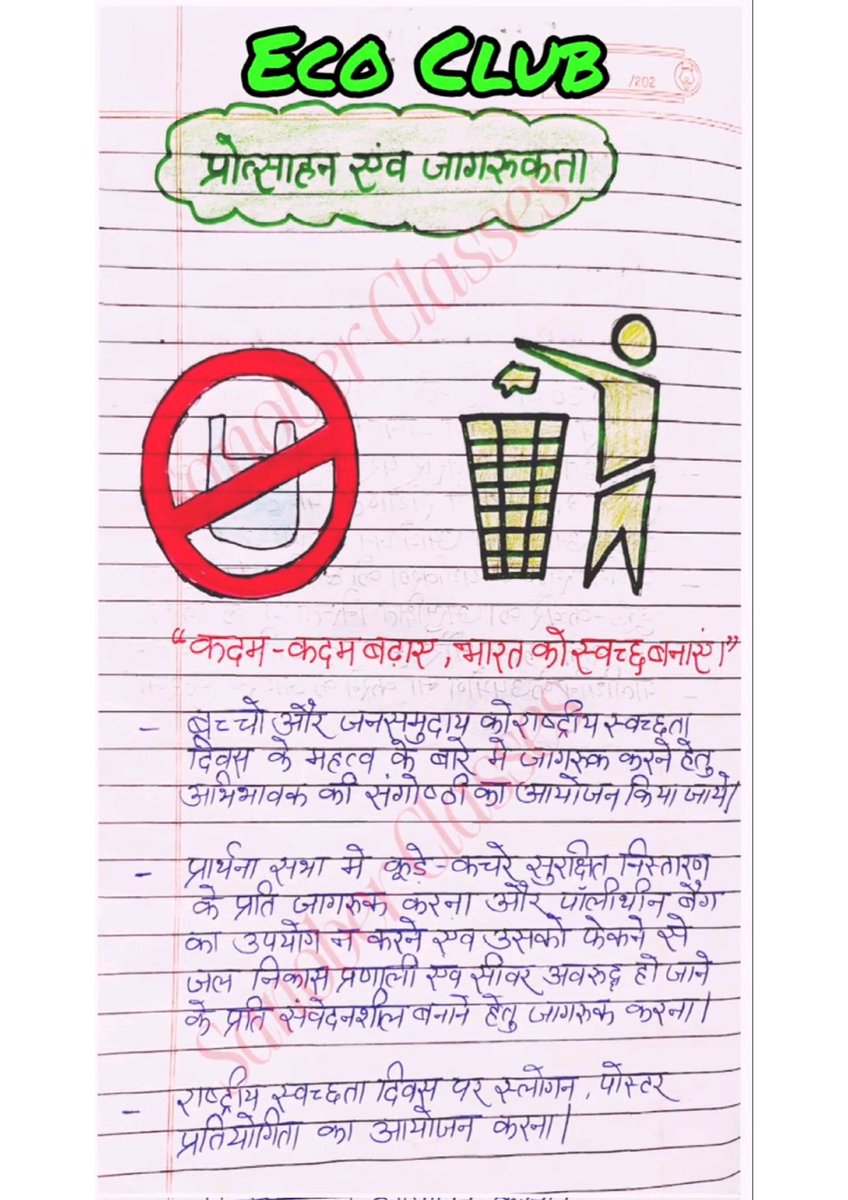 Eco Club
/202
प्रोत्साहन एंव जागरुकता
"कदम-कदम बढ़ाए, भारत को स्वच्छ बनाएं।"
- बच्चो और जनसमुदाय को राष्ट्रीय स्वच्छता
दिवस के महत्व के बारे मे जागरुक करने हेतु
अभिभावक की संगोष्ठी का आयोजन किया जाये।
- प्रार्थना सभा मे कूड़े-कचरे सुरक्षित निस्तारण
के प्रति जागरुक करना और पॉलीथीन बैग
का उपयोग न करने एव उसको फेकने से
जल निकास प्रणाली एव सीवर अवरुद्ध हो जाने
के प्रति संवेदनशील बनाने हेतु जागरुक करना।
- राष्ट्रीय स्वच्छता दिवस पर स्लोगन, पोस्टर
प्रतियोगिता का आयोजन करना।
Sanober Classes
Sanober Classes